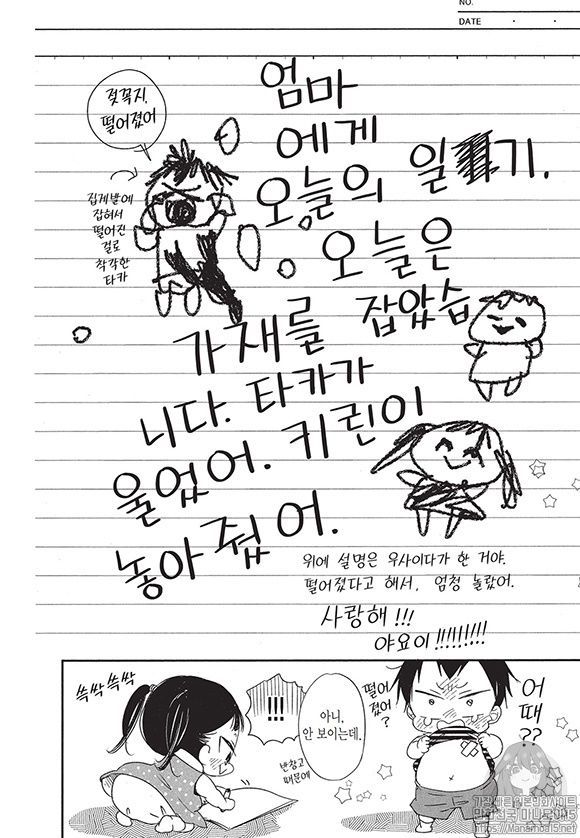 NO.
DATE
젖꼭지,
떨어졌어
집게발에
잡혀서
떨어진
걸로
착각한
타카
엄마
에게
오늘의 일기.
오늘은
가재를 잡았습
니다. 타카가
울었어. 키린이
놓아줬어.
위에 설명은 우사이다가 한 거야.
떨어졌다고 해서, 엄청 놀랐어.
사랑해!!!
야요이!!!!!!!!!
쓱싹쓱싹
!!!
아니,
안 보이는데.
반창고
때문에
떨어
졌어?
어
때
??